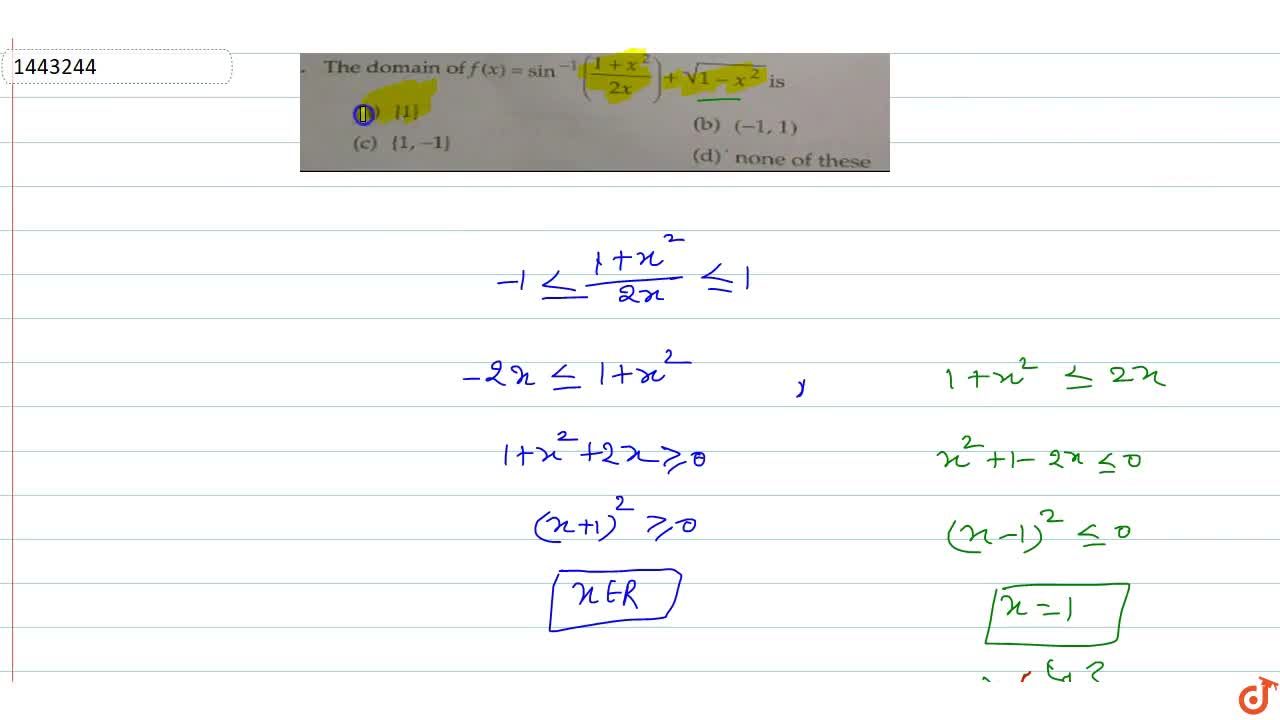 1443244
. The domain of f(x) = sin⁻¹((1 + x²)/2x) + √(1 − x²) is
{1}
(b) (−1, 1)
(c) {1, −1}
(d) none of these
−1 ≤ (1 + x²)/2x ≤ 1
−2x ≤ 1 + x² , 1 + x² ≤ 2x
1 + x² + 2x ≥ 0 x² + 1 − 2x ≤ 0
(x + 1)² ≥ 0 (x − 1)² ≤ 0
x ∈ R x = 1